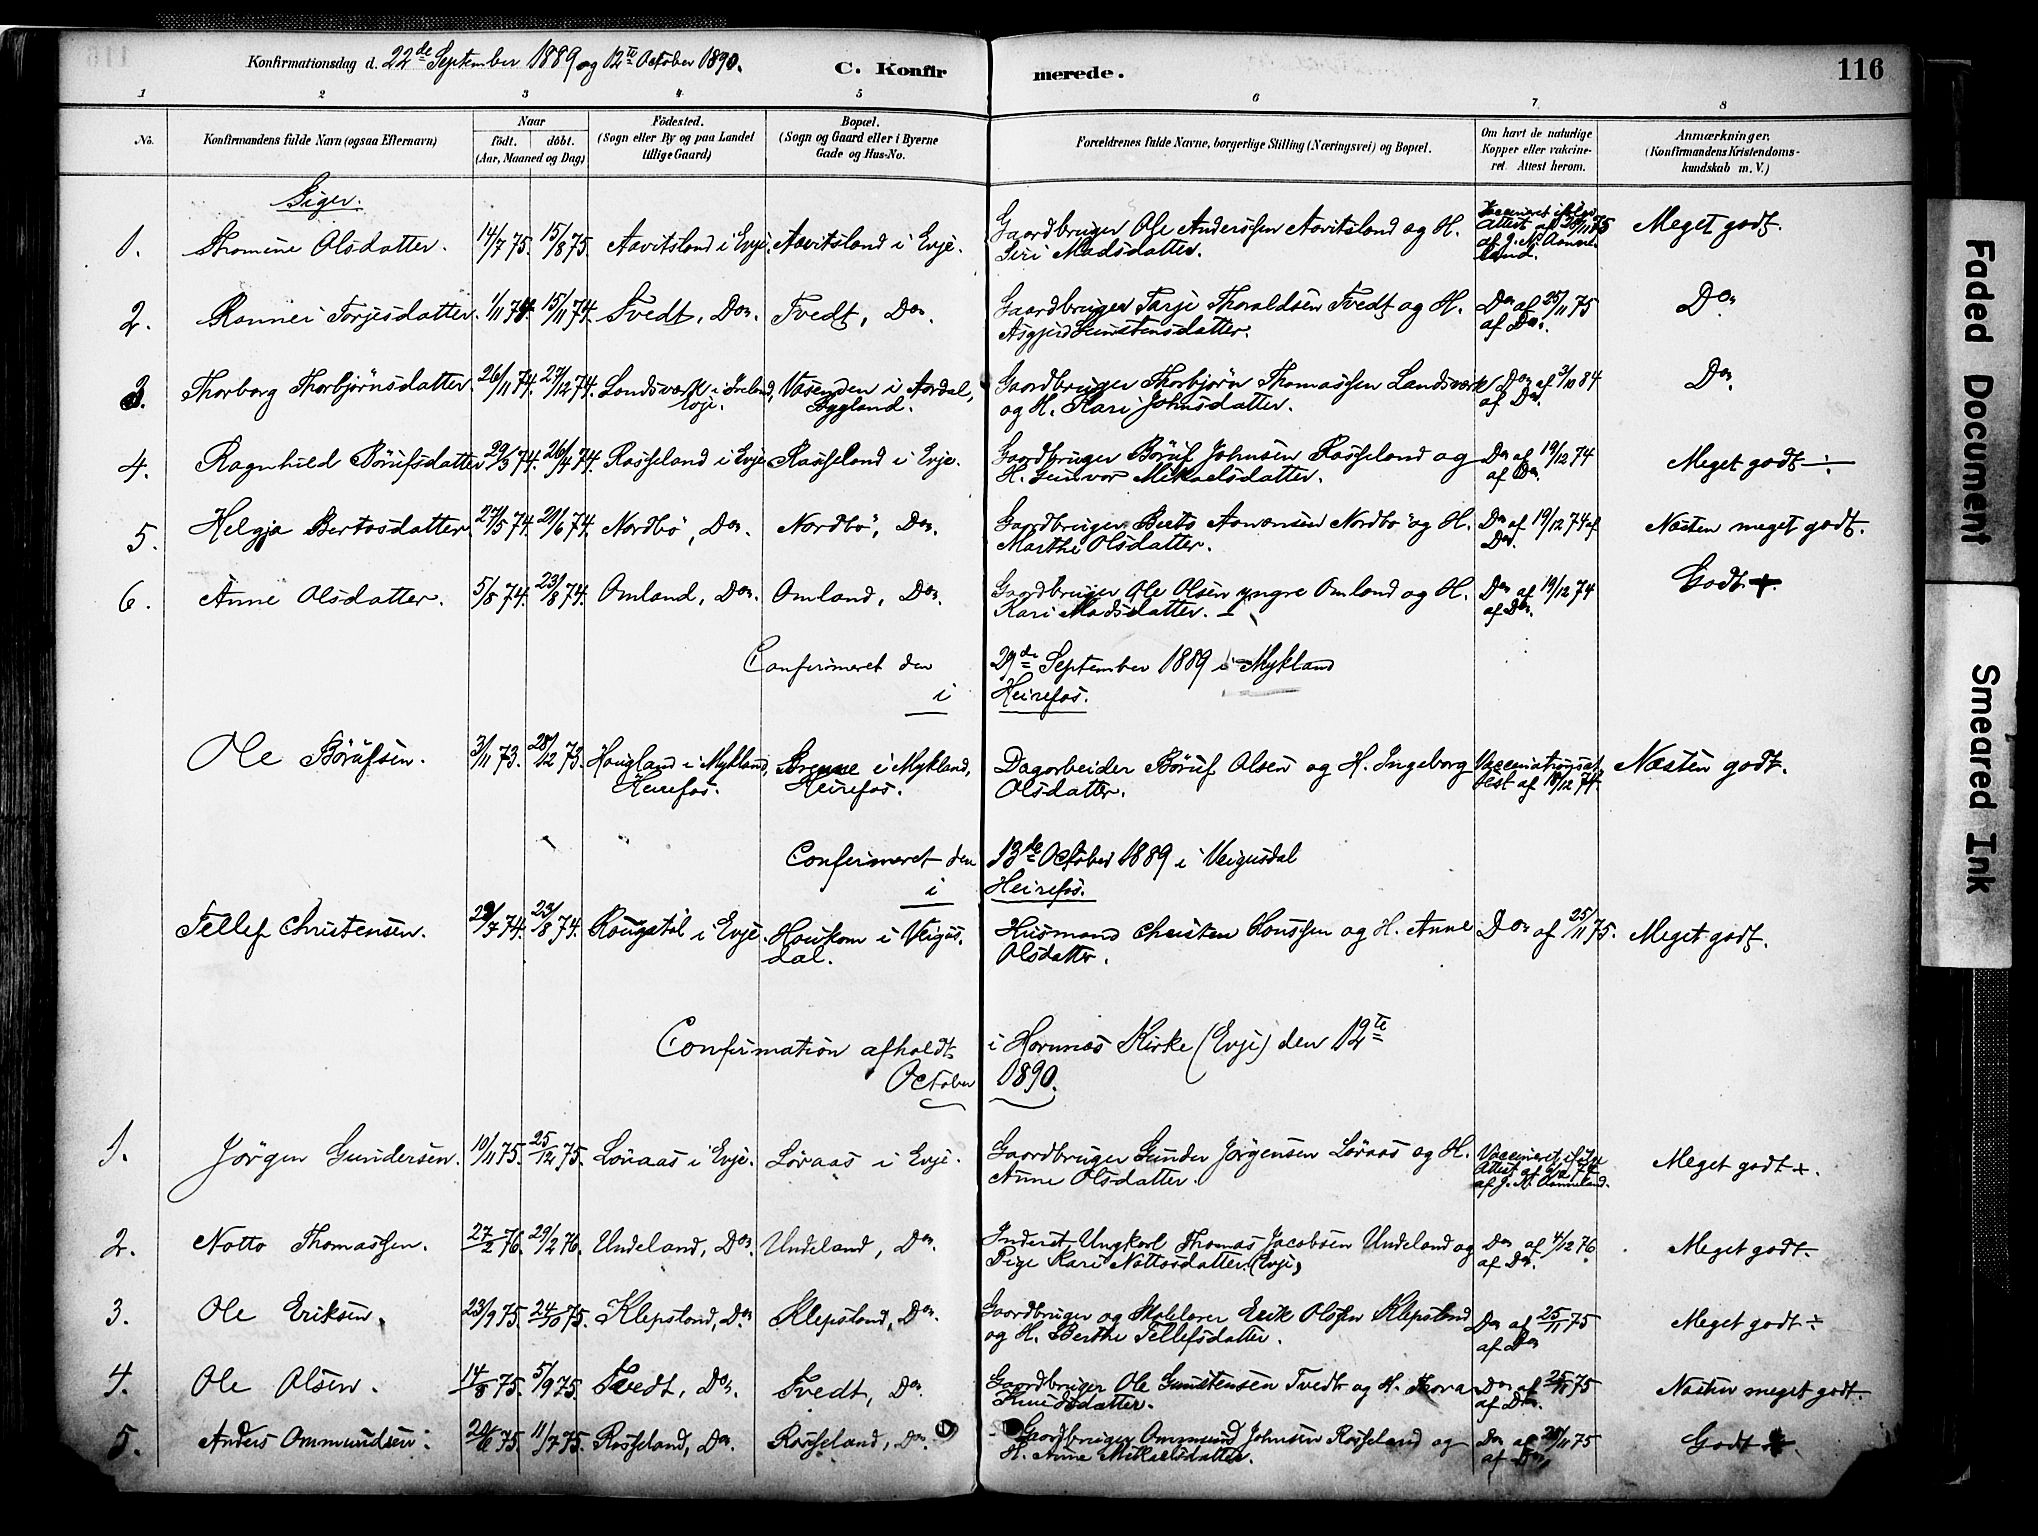 116
Konfirmationsdag d. 22de September 1889 og 12te October 1890.
C. Konfirmerede.
1 2 3 4 5 6 7 8
No.
Konfirmandens fulde Navn (ogsaa Efternavn)
Naar
født. døbt.
(Aar, Maaned og Dag)
Fødested.
(Sogn eller By og paa Landet
tillige Gaard)
Bopæl.
(Sogn og Gaard eller i Byerne
Gade og Hus-No.
Forældrenes fulde Navne, borgerlige Stilling (Næringsvei) og Bopæl.
Om havt de naturlige
Kopper eller vakcine-
ret. Attest herom.
Anmærkninger.
(Konfirmandens Kristendoms-
kundskab m. V.)
Piger.
1. Thomine Olsdatter. 14/7 75. 15/8 75. Aavitsland i Evje. Aavitsland i Evje. Gaardbruger Ole Anderssen Aavitsland og H.
Siri Madsdatter.
Vaccineret ifølge
Attest af 25/11 75
af J. N. Aanne-
land.
Meget godt.
2. Rannei Torjesdatter. 1/11 74. 15/11 74. Tvedt, Do. Tvedt, Do. Gaardbruger Tarje Thoraldsen Tvedt og H.
Asgjerd Gunstensdatter.
Do af 25/11 75
af Do.
Do
3. Thorborg Thorbjørnsdatter. 26/11 74. 27/12 74. Landsværk i Iveland,
Evje.
Vasenden i Aardal,
Bygland.
Gaardbruger Thorbjørn Thomassen Landsværk
og H. Kari Johnsdatter.
Do af 3/10 84
af Do.
Do.
4. Ragnhild Børufsdatter 29/3 74. 26/4 74. Rosseland i Evje Rosseland i Evje. Gaardbruger Børuf Johnsen Rosseland og
H. Gunvor Mikaelsdatter.
Do af 19/12 74
af Do.
Meget godt ÷
5. Helgja Bertosdatter. 27/5 74. 21/6 74. Nordbø, Do. Nordbø, Do. Gaardbruger Berto Aanonsen Nordbø og H.
Marthe Olsdatter.
Do af 19/12 74 af
Do.
Næsten meget godt.
6. Anne Olsdatter. 5/8 74. 23/8 74. Omland, Do. Omland, Do. Gaardbruger Ole Olsen yngre Omland og H.
Kari Madsdatter.
Do af 19/12 74
af Do.
Godt +.
Confirmeret den 29de September 1889 i Mykland
i Heirefos.
Ole Børufsen. 3/11 73. 28/12 73. Haugland i Mykland,
Heirefos.
Grenne i Mykland,
Heirefos.
Dagarbeider Børuf Olsen og H. Ingeborg
Olsdatter.
Vaccinationsat-
test af 18/12 74.
Næsten godt.
Confirmeret den 13de October 1889 i Veigusdal
i Heirefos.
Tellef Christensen. 29/7 74. 23/8 74. i Evje. Haukom i Veigus-
dal.
Husmand Christen og H. Anne
Olsdatter.
Do af 25/11 75.
Meget godt.
Confirmation afholdt i Hornnæs Kirke (Evje) den 12te
October 1890.
1. Jørgen Gundersen. 10/11 75. 25/12 75. Løvaas i Evje. Løvaas i Evje. Gaardbruger Gunder Jørgensen Løvaas og H.
Anne Olsdatter.
Vaccineret ifølge
Attest af
af J. N. Aanneland.
Meget godt +.
2. Notto Thomassen. 27/2 76. 29/2 76. Undeland, Do. Undeland, Do. Inderst Ungkarl Thomas Jacobsen Undeland og
Pige Kari Nottosdatter (Evje)
Do af 4/12 76
af Do.
Meget godt.
3. Ole Eriksen. 23/9 75. 24/10 75. Klepsland, Do. Klepsland, Do. Gaardbruger og Skolelærer Erik Olssen Klepsland
og H. Berthe Tellefsdatter.
Do af 25/11 75
af Do
Meget godt ÷
4. Ole Olsen. 14/8 75. 5/9 75. Tvedt, Do. Tvedt, Do. Gaardbruger Ole Gunstensen Tvedt og H. Thora
Knudsdatter.
Do af 25/11 75
af Do.
Næsten meget godt.
5. Anders Ommundsen. 20/6 75. 11/7 75. Rosseland, Do. Rosseland, Do. Gaardbruger Ommund Johnsen Rosseland og
H. Anne Mikaelsdatter.
Do af 25/11 75
af Do
Godt
Faded Document
Smeared Ink